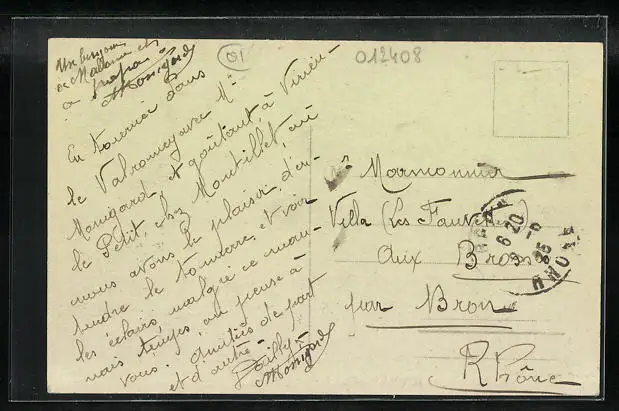 Un bonjour
de Madame et
a
Monigard
01
012408
En tournée dans
le Valromey avec Mr
Monigard, et goûtant, à Virieu-
le Petit, chez Montillet, où
nous avons le plaisir d'en-
tendre le tonnerre et voir
les éclairs, malgré ce mau-
vais temps, on pense à
vous. Amitiés de part
et d'autre.
Monigard
Mr Marmonnier
Villa (Les Fauvettes)
aux Brosses
par Bron
Rhône
BRON
RHONE